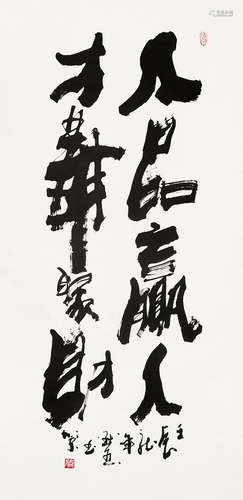 人品赢人
才华聚财
壬辰龙年
书